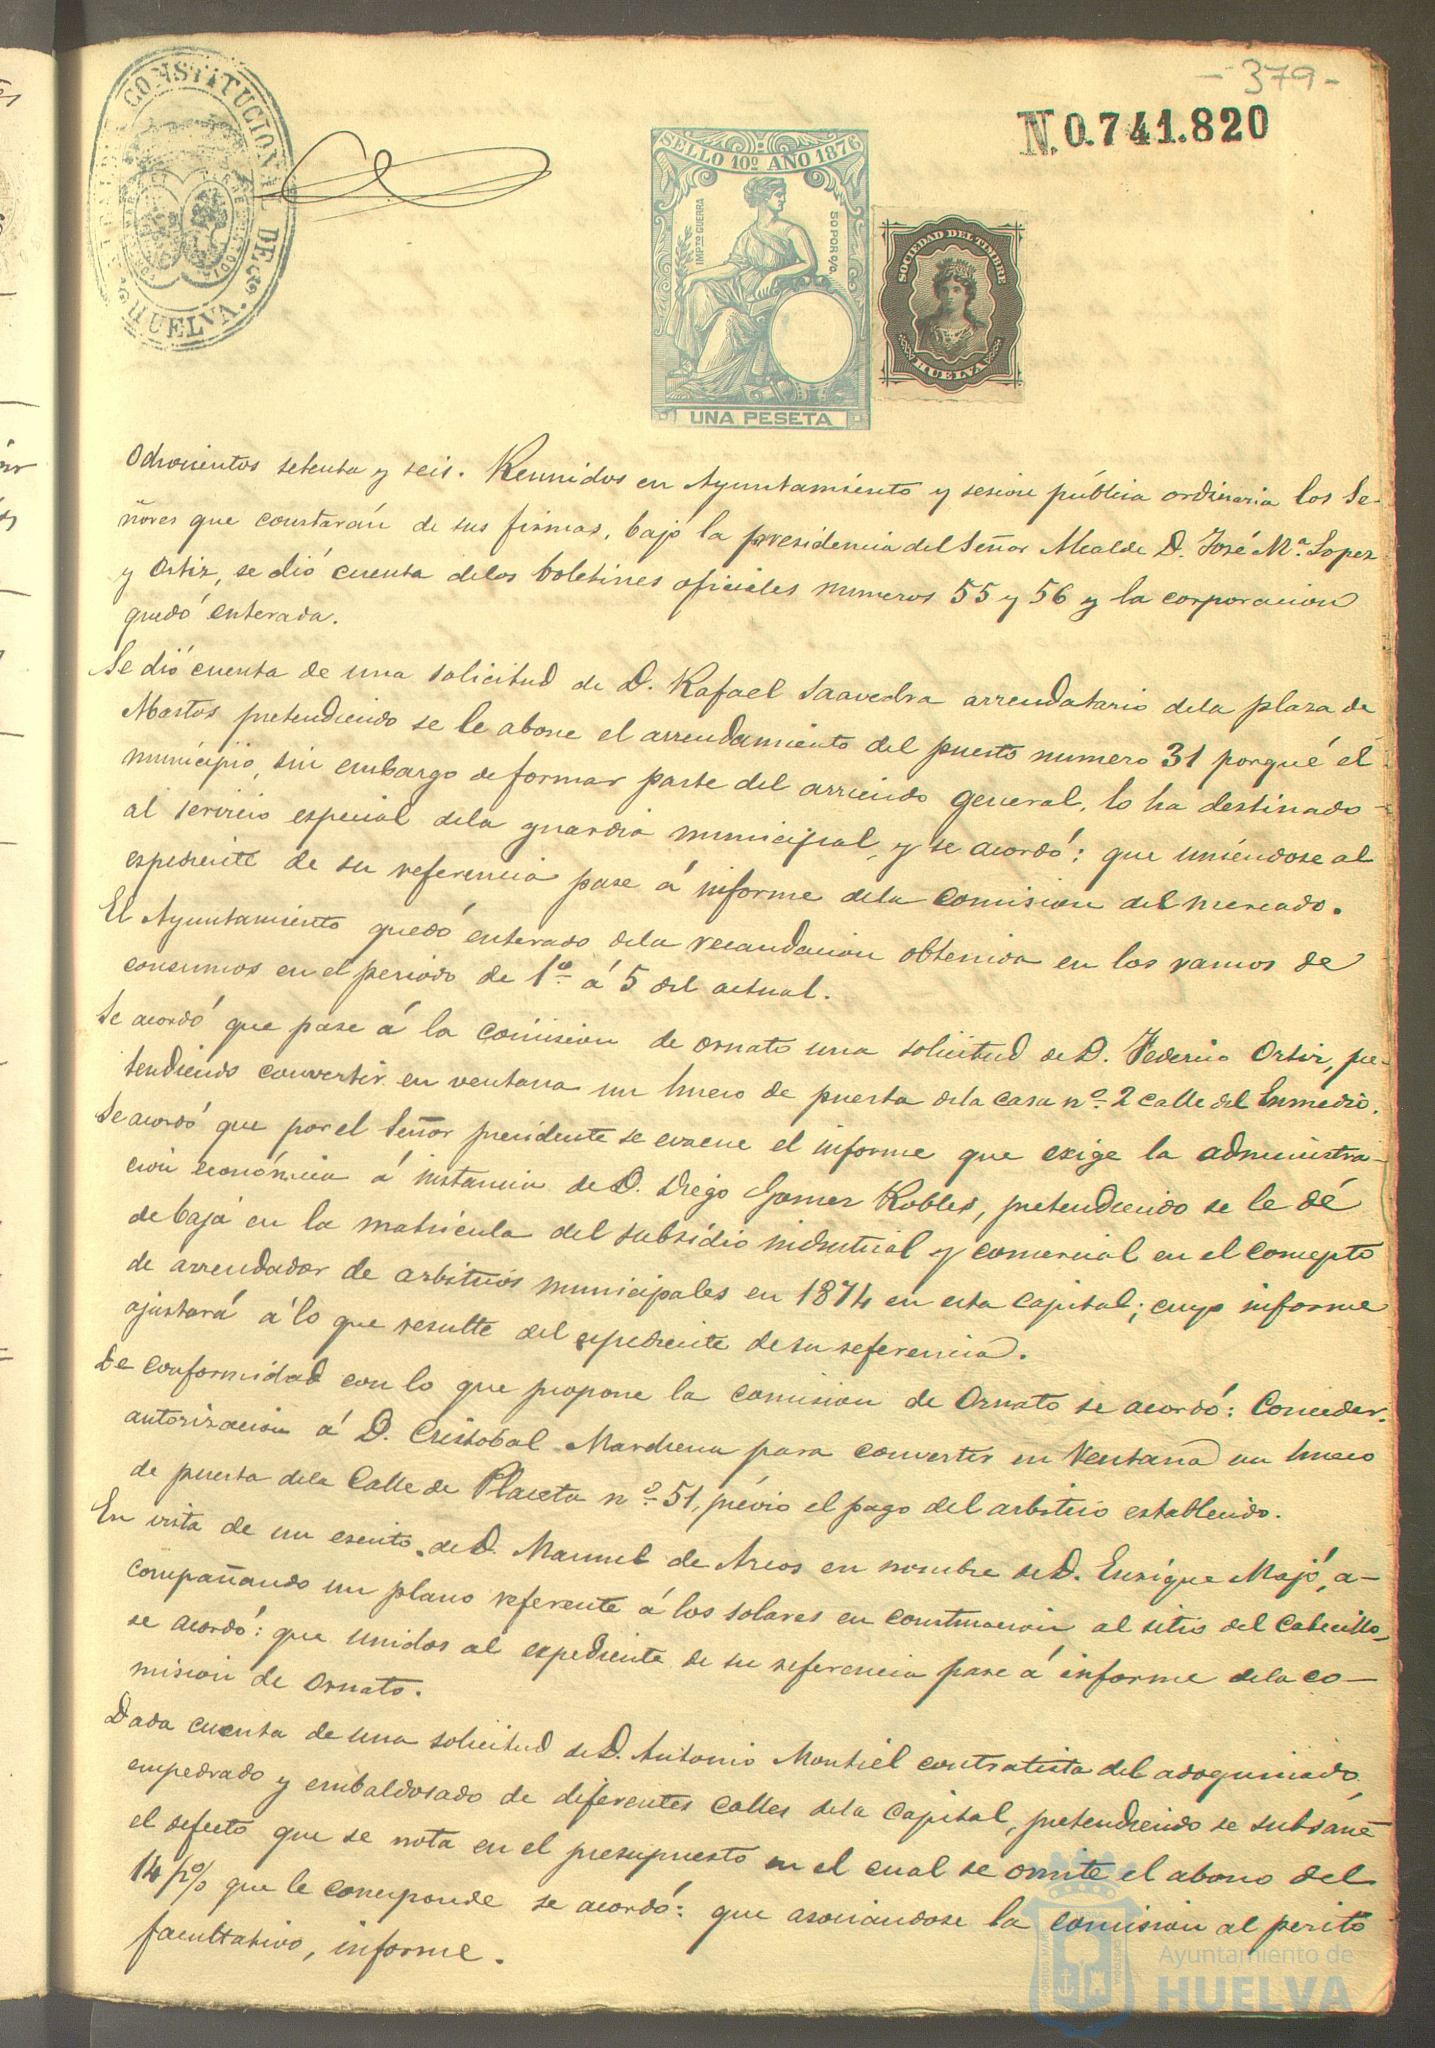 - 379 -
N. 0.741.820
CONSTITUCIONAL DE HUELVA.
SELLO 10º AÑO 1876
IMPTO GUERRA
50 POR 0/0
UNA PESETA
SOCIEDAD DEL TIMBRE
HUELVA
Ochocientos setenta y seis. Reunidos en Ayuntamiento y sesion pública ordinaria los Se-
ñores que constarán de sus firmas, bajo la presidencia del Señor Alcalde D. José Mª. Lopez
y Ortiz, se dió cuenta delos boletines oficiales numeros 55 y 56 y la corporacion
quedó enterada.
Se dió cuenta de una solicitud de D. Rafael Saavedra arrendatario dela plaza de
Abastos pretendiendo se le abone el arrendamiento del puesto numero 31 porqué el
municipio, sin embargo de formar parte del arriendo general, lo ha destinado
al servicio especial dela guardia municipal, y se acordó: que uniéndose al
espediente de su referencia pase á informe dela comision del mercado.
El Ayuntamiento quedó enterado dela recaudacion obtenida en los ramos de
consumos en el periodo de 1º á 5 del actual.
Se acordó que pase á la comision de ornato una solicitud de D. Federico Ortiz, pre-
tendiendo convertir en ventana un hueco de puerta dela casa nº 2 calle del Enmedio.
Se acordó que por el Señor presidente se evacue el informe que exige la administra-
cion económica á instancia de D. Diego Gomez Robles, pretendiendo se le dé
de baja en la matricula del subsidio industrial y comercial en el concepto
de arrendador de arbitrios municipales en 1874 en esta Capital; cuyo informe
ajustará á lo que resulte del espediente de su referencia.
De conformidad con lo que propone la comision de Ornato se acordó: Conceder
autorizacion á D. Cristobal Marchena para convertir en Ventana un hueco
de puerta dela Calle de Placeta nº 51, prévio el pago del arbitrio establecido.
En vista de un escrito de D. Manuel de Arcos en nombre de D. Enrique Majó, a-
compañando un plano referente á los solares en construccion al sitio del Cabecillo,
se acordó: que unidos al espediente de su referencia pase á informe dela co-
mision de Ornato.
Dada cuenta de una solicitud de D. Antonio Montiel contratista del adoquinado
empedrado y embaldosado de diferentes calles dela Capital, pretendiendo se subsane
el defecto que se nota en el presupuesto en el cual se omite el abono del
14 p% que le corresponde se acordó: que asociandose la comision al perito
facultativo, informe.
Ayuntamiento de
HUELVA